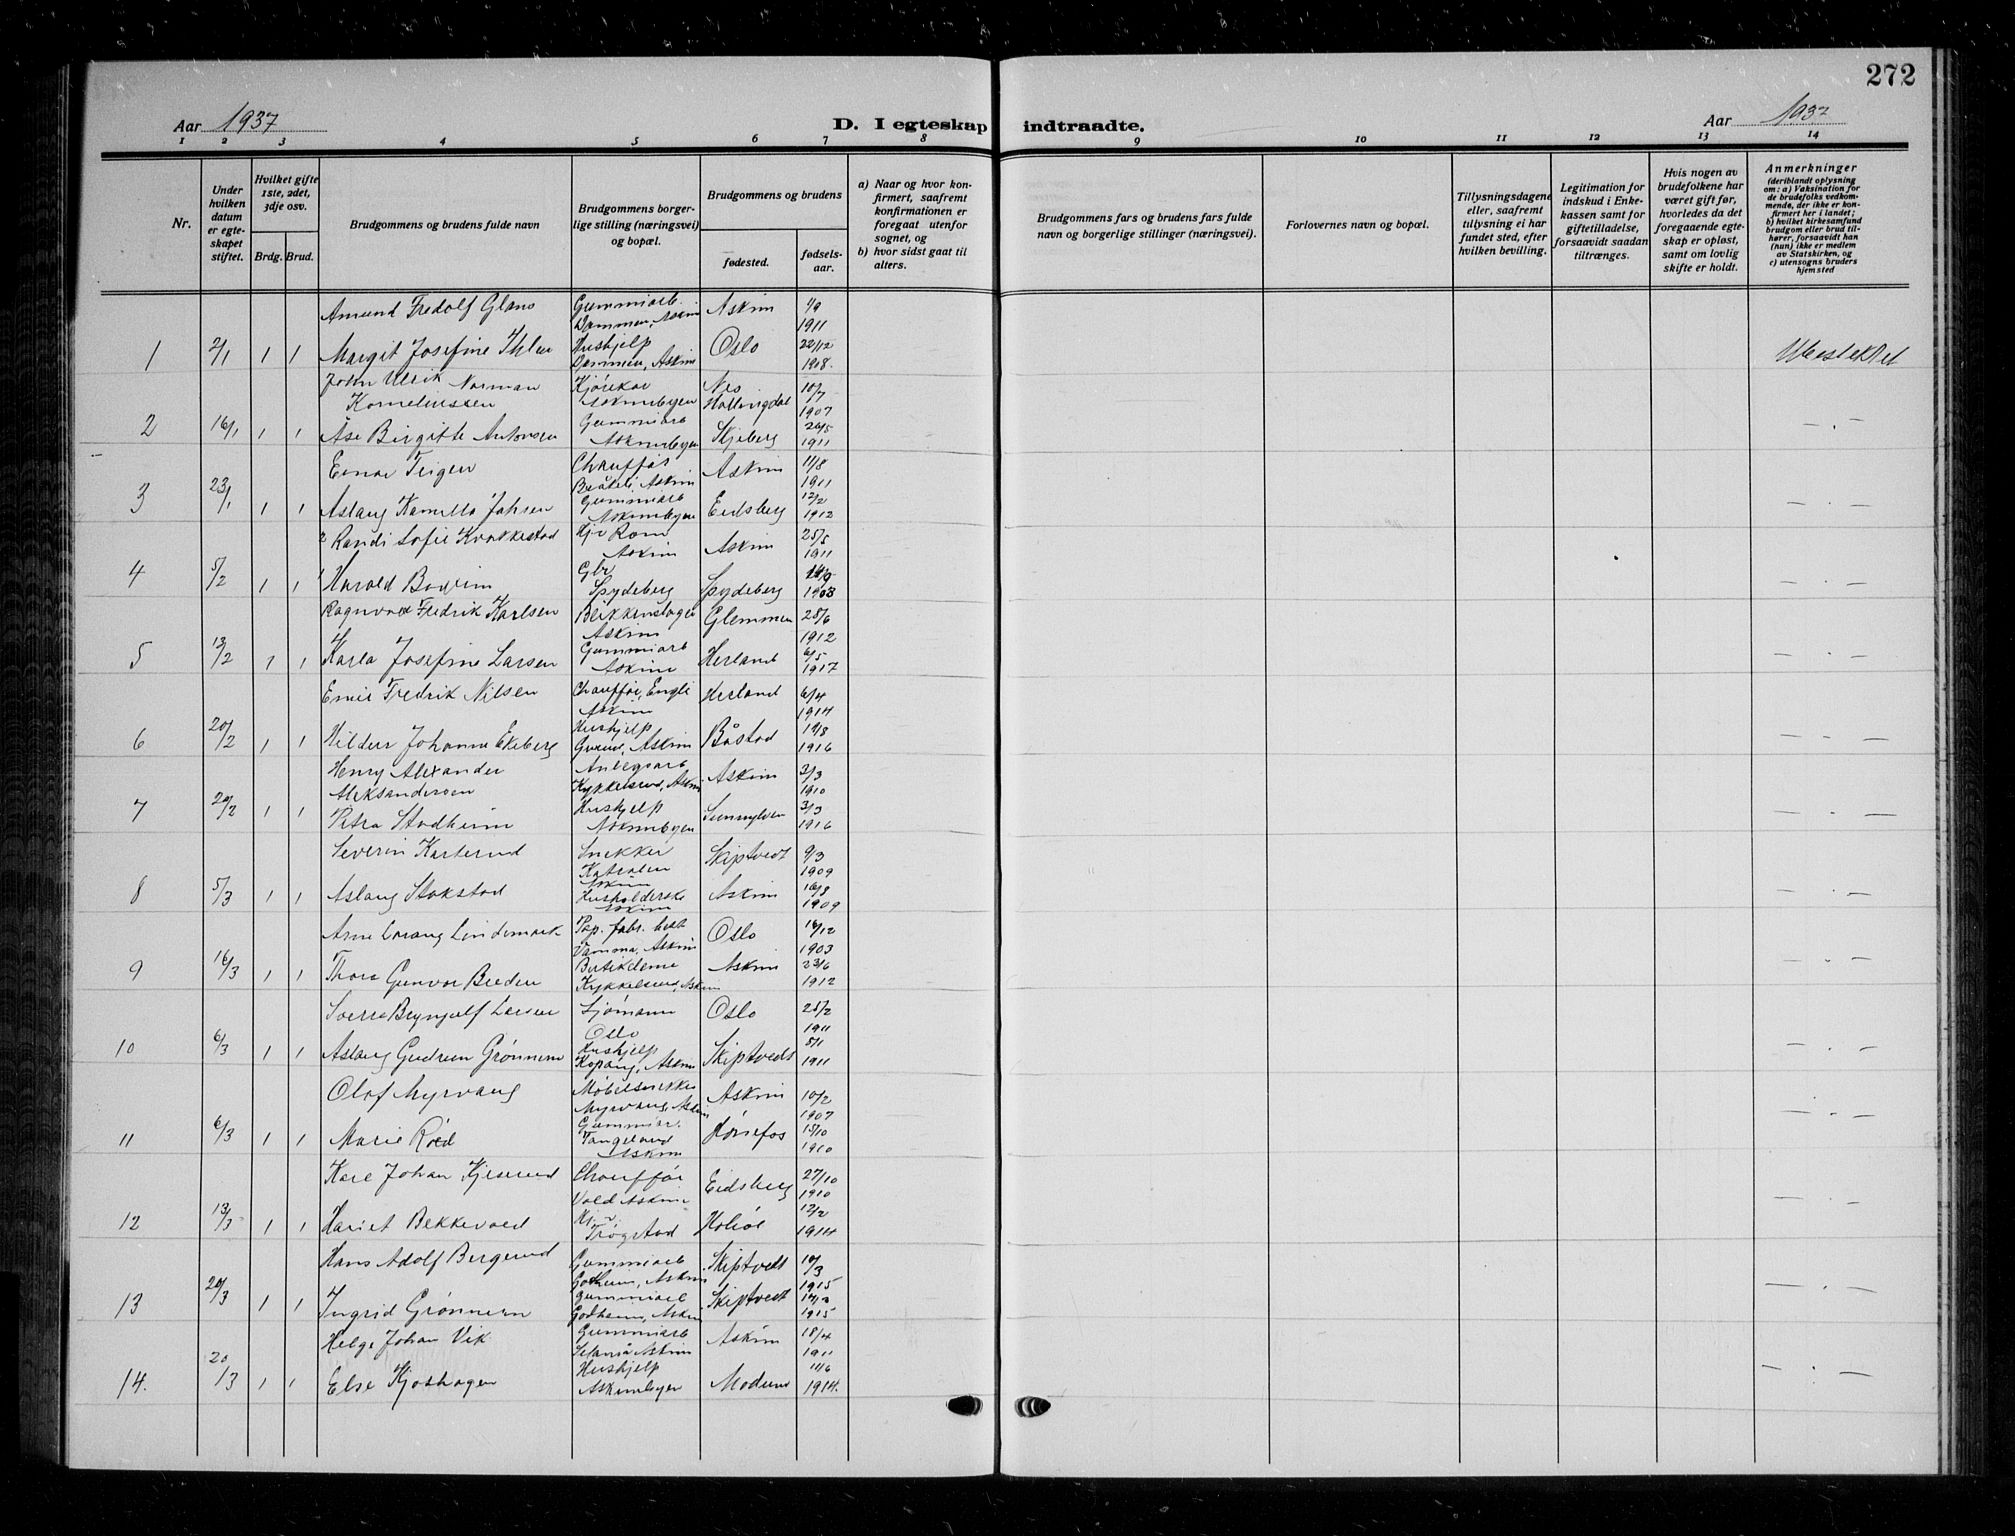 272
Aar 1937
D. I egteskap indtraadte.
Aar 1937
1 2 3 4 5 6 7 8 9 10 11 12 13 14
Nr.
Under hvilken datum er egteskapet stiftet.
Hvilket gifte 1ste, 2det, 3dje osv.
Brdg. Brud.
Brudgommens og brudens fulde navn
Brudgommens borgerlige stilling (næringsvei) og bopæl.
Brudgommens og brudens
fødested.
fødselsaar.
a) Naar og hvor konfirmert, saafremt konfirmationen er foregaat utenfor sognet, og
b) hvor sidst gaat til alters.
Brudgommens fars og brudens fars fulde navn og borgerlige stillinger (næringsvei).
Forlovernes navn og bopæl.
Tillysningsdagene eller, saafremt tillysning ei har fundet sted, efter hvilken bevilling.
Legitimation for indskud i Enkekassen samt for giftetilladelse, forsaavidt saadan tiltrænges.
Hvis nogen av brudefolkene har været gift før, hvorledes da det foregaaende egteskap er opløst, samt om lovlig skifte er holdt.
Anmerkninger
(deriblandt oplysning om: a) Vaksination for de brudefolks vedkommende, der ikke er konfirmert her i landet; b) hvilket kirkesamfund brudgom eller brud tilhører, forsaavidt han (hun) ikke er medlem av Statskirken, og c) utensogns bruders hjemsted
Amund Fredolf Glans Gummiarb. Dammen, Askim Askim 1/9 1911
1 2/1 1 1 Margit Josefine Ihlen Hushjelp Dammen, Askim Oslo 22/12 1908.
John Ulrik Norman Korneliussen Kjørekar Askimbyen Nes Hallingdal 10/7 1907
2 16/1 1 1 Åse Birgitte Antonsen Gummiarb Askimbyen Skjeberg 26/5 1911 - . -
Einar Teigen Chauffør Bråtili, Askim Askim 11/8 1911
3 23/1 1 1 Aslaug Kamilla Johsen Gummiarb Askimbyen Eidsberg 12/2 1912 - . -
2 Randi Sofie Krokkestad Hjv Rom Askim Askim 25/5 1911
4 5/2 1 1 1 Harald Bovim Gbr Spydeberg Spydeberg 1908 - . -
Ragnvald Fredrik Karlsen Blikkenslager Askim Glemmen 28/6 1912
5 13/2 1 1 Karla Josefine Larsen Gummiarb Askim Herland 6/5 1917 - . -
Emil Fredrik Nilsen Chauffør, Engli Askim Herland 6/4 1914
6 20/2 1 1 Hildur Johanne Ekeberg Hushjelp Grund, Askim Båstad 19/8 1916 - . -
Henry Alexander Aleksandersen Anlegsarb Kykkelsrud, Askim Askim 3/3 1910
7 20/2 1 1 Petra Stadheim Hushjelp Askimbyen Sunnylven 3/3 1916 - . -
Severin Karterud Snekker Askim Skiptvedt 9/3 1909
8 5/3 1 1 Aslaug Stokstad Husholderske Askim Askim 16/8 1909 - . -
Arne Lorang Lindemark Pap. fabr. best Vamma, Askim Oslo 16/12 1903
9 16/3 1 1 Thora Gunvor Breden Butikdame Kykkelsrud, Askim Askim 23/6 1912 - . -
Sverre Brynjulf Larsen Sjømann Oslo Oslo 25/2 1911
10 6/3 1 1 Aslaug Gudrun Grønnern Hushjelp Kopång, Askim Skiptvedt 5/1 1911 - . -
Olaf Myrvang Møbelsnekker Myrvang, Askim Askim 10/2 1907
11 6/3 1 1 Marie Rød Gummiar. Tangeland Askim Hønefos 15/10 1910 - . -
Kåre Johan Kjeserud Chauffør Vold Askim Eidsberg 27/10 1910
12 13/3 1 1 Hariet Bekkevold Hjv. Trøgstad Hobøl 12/2 1914 - . -
Hans Adolf Bergerud Gummiarb Godheim, Askim Skiptvedt 10/3 1915
13 20/3 1 1 Ingrid Grønnern Gummiarb Godheim, Askim Skiptvedt 1915 - . -
Helge Johan Vik Gummiarb Askim Askim 18/4 1911
14. 20/3 1 1 Else Kjoshagen Hushjelp Askimbyen Modum 11/6 1914. - . -